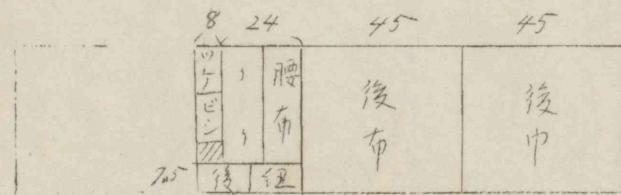 8 24 45 45
ツケビシ
腰布
後布
後巾
7.5
後 紐